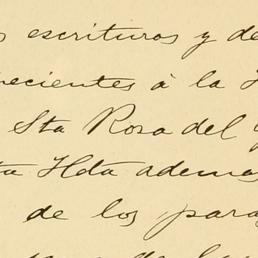 escrituras y de
necientes à la H
Sta Rosa del
ta Hda ademas
de los para